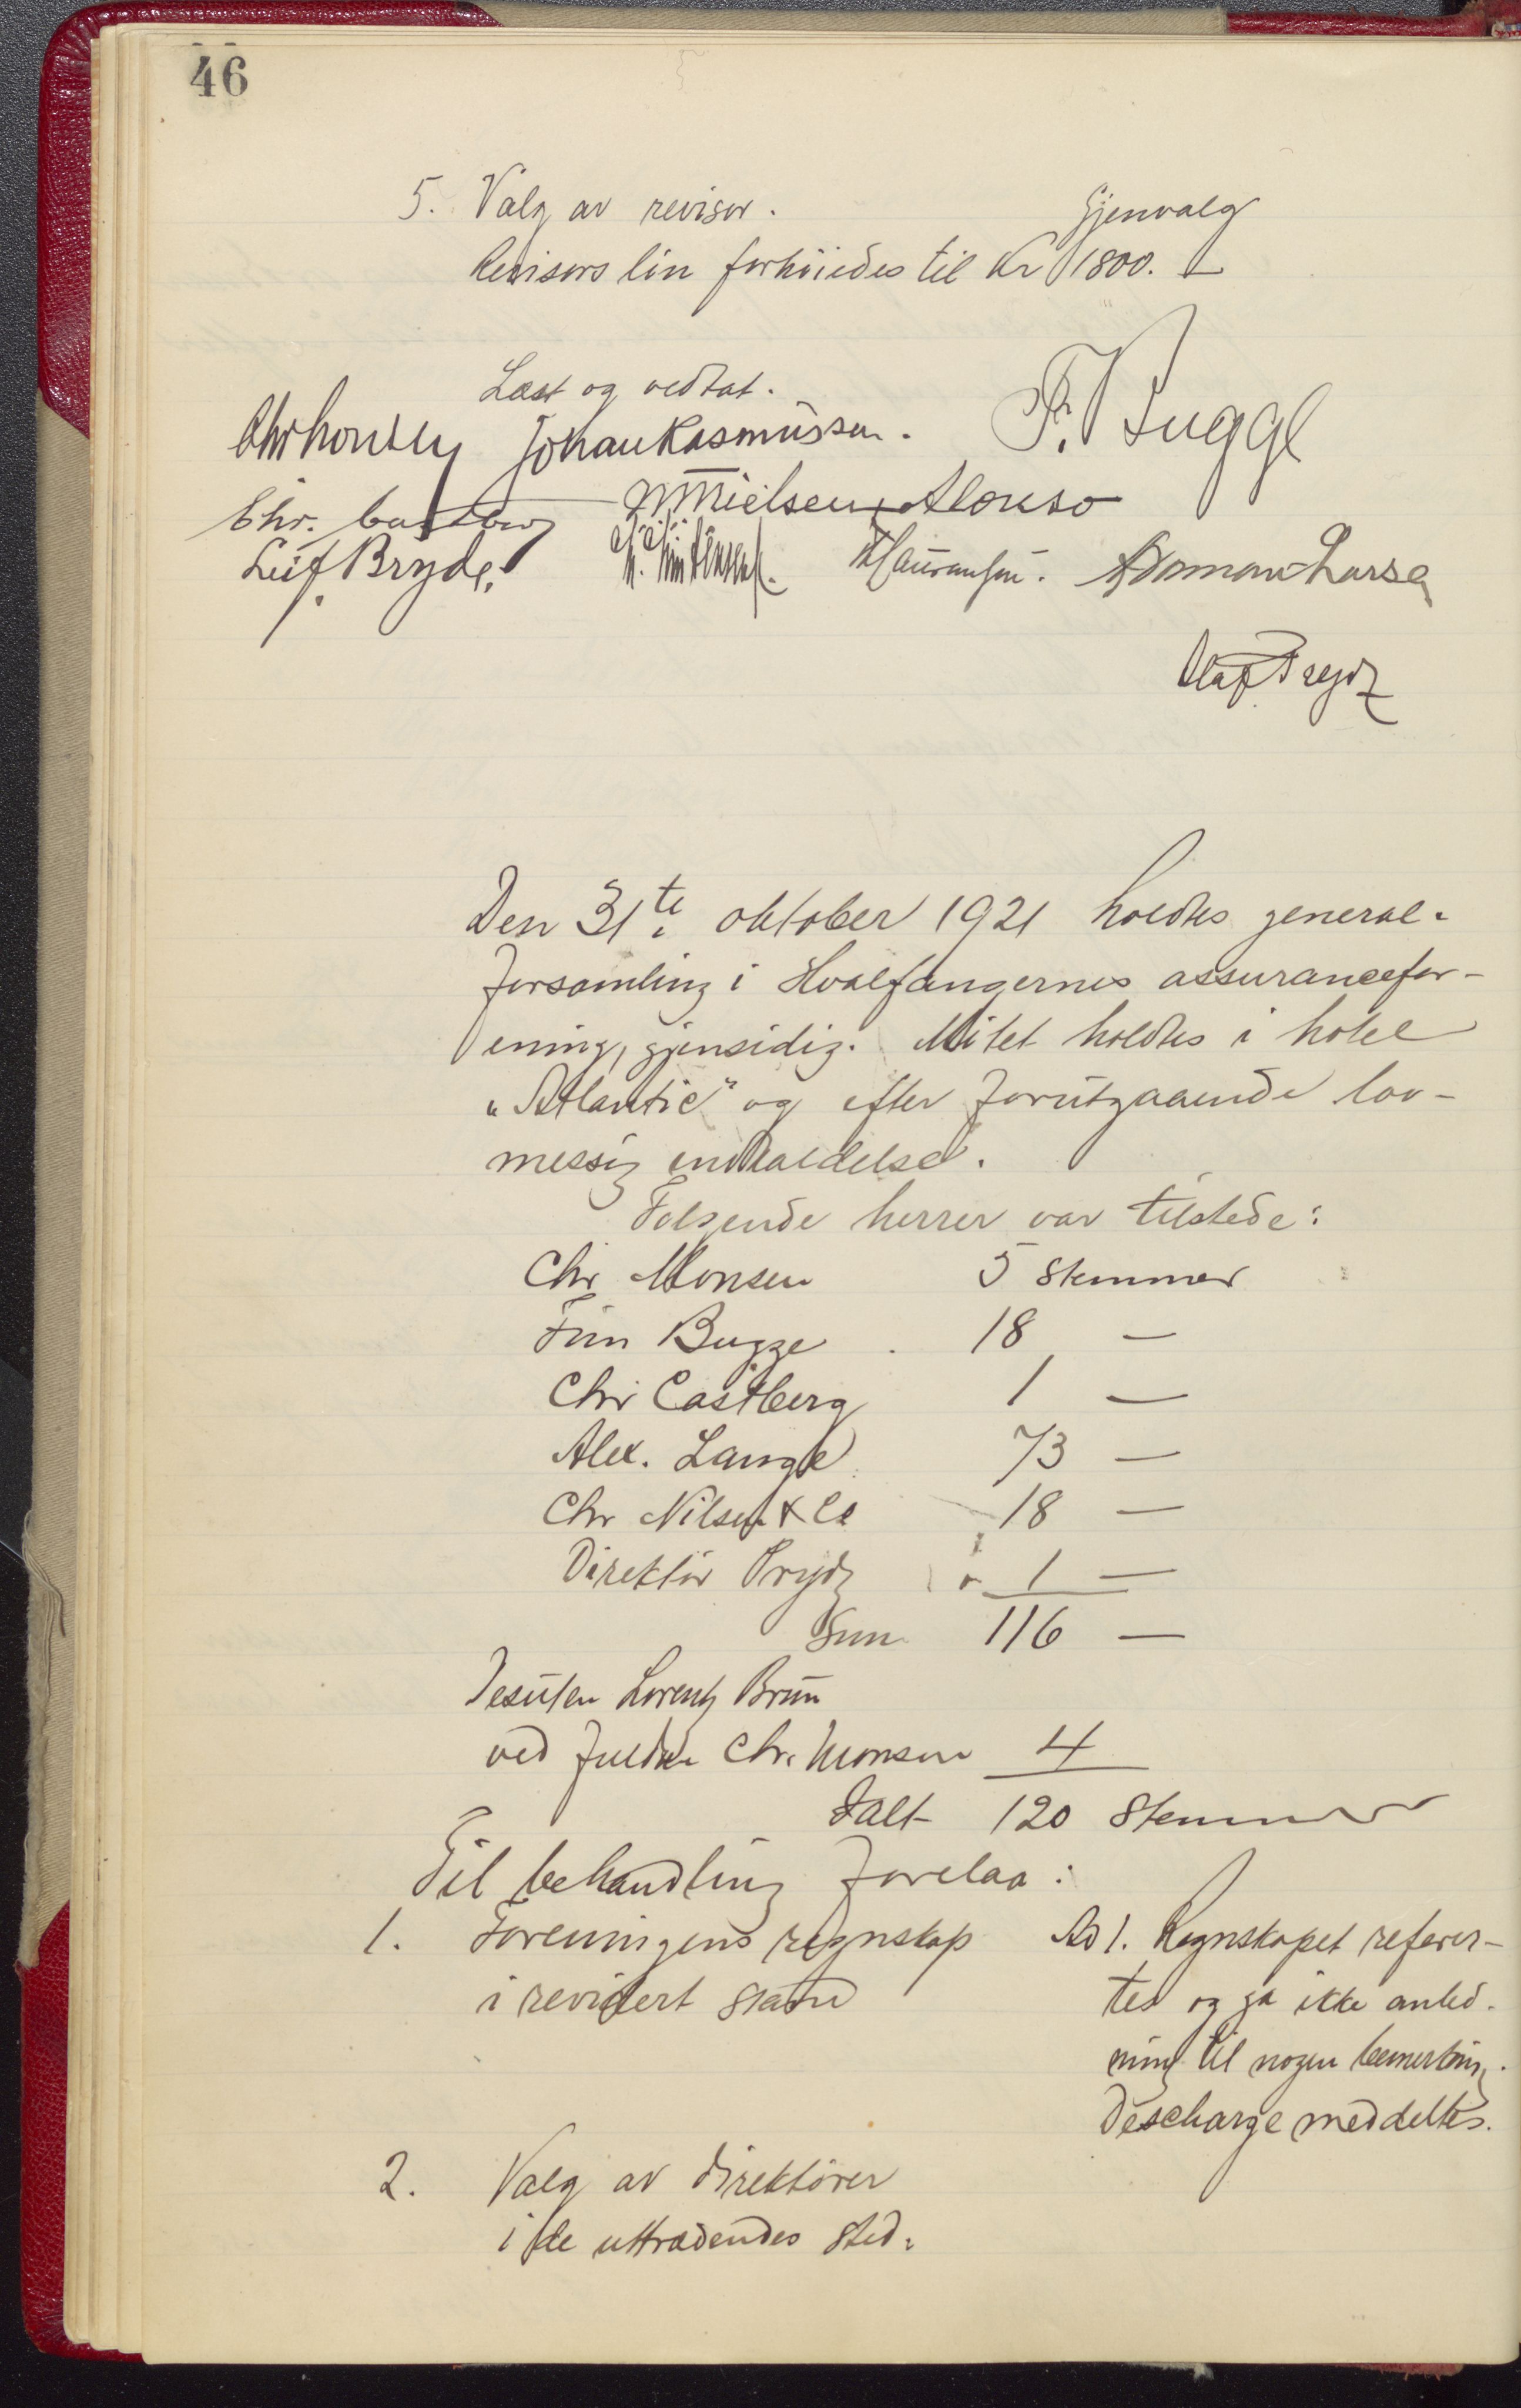 46
5. Valg av revisor. Gjenvalg
Revisors lön forhöiedes til Kr 1800.–
Læst og vedtat.
Chr Monsen Johan Rasmussen. F. Bugge
Chr. Castberg N Nielsen-Alonso
Leif Bryde. H. Mauransen. Adamon Larsen
Olaf Prydz
Den 31te oktober 1921 holdtes general-
forsamling i Hvalfangernes assurancefor-
ening, gjensidig. Mötet holdtes i hotel
"Atlantic" og efter forutgaaende lov-
messig indkaldelse.
Følgende herrer var tilstede:
Chr Monsen 5 Stemmer
Finn Bugge 18 —
Chr Castberg 1 —
Alex. Lange 73 —
Chr Nilsen & Co 18 —
Direktör Prydz 1 —
Sum 116 —
Desuten Lorentz Brun
ved fuldm Chr. Monsen 4
Ialt 120 Stemmer
Til behandling forelaa:
1. Foreningens regnskap
i revidert stand
Ad 1. Regnskapet refarer-
tes og ga ikke anled-
ning til nogen bemerkning.
Descharge meddeltes.
2. Valg av direktörer
i de uttrædendes sted.